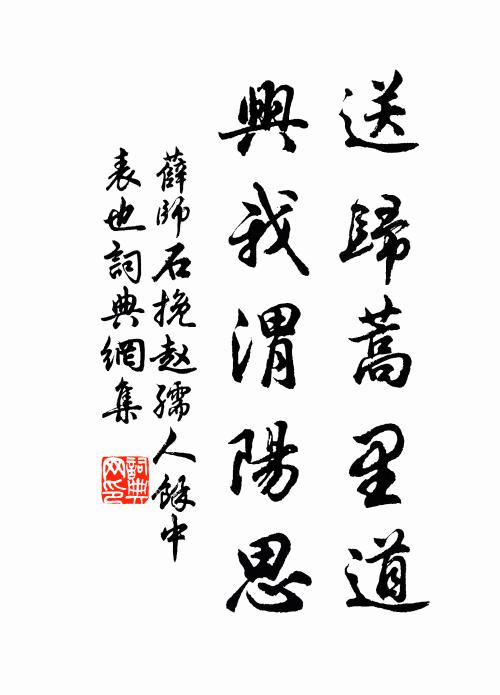 送歸蒿里道
興我渭陽思
薛師石挽赵孺人餘中
表也詞典網集
詞典网印